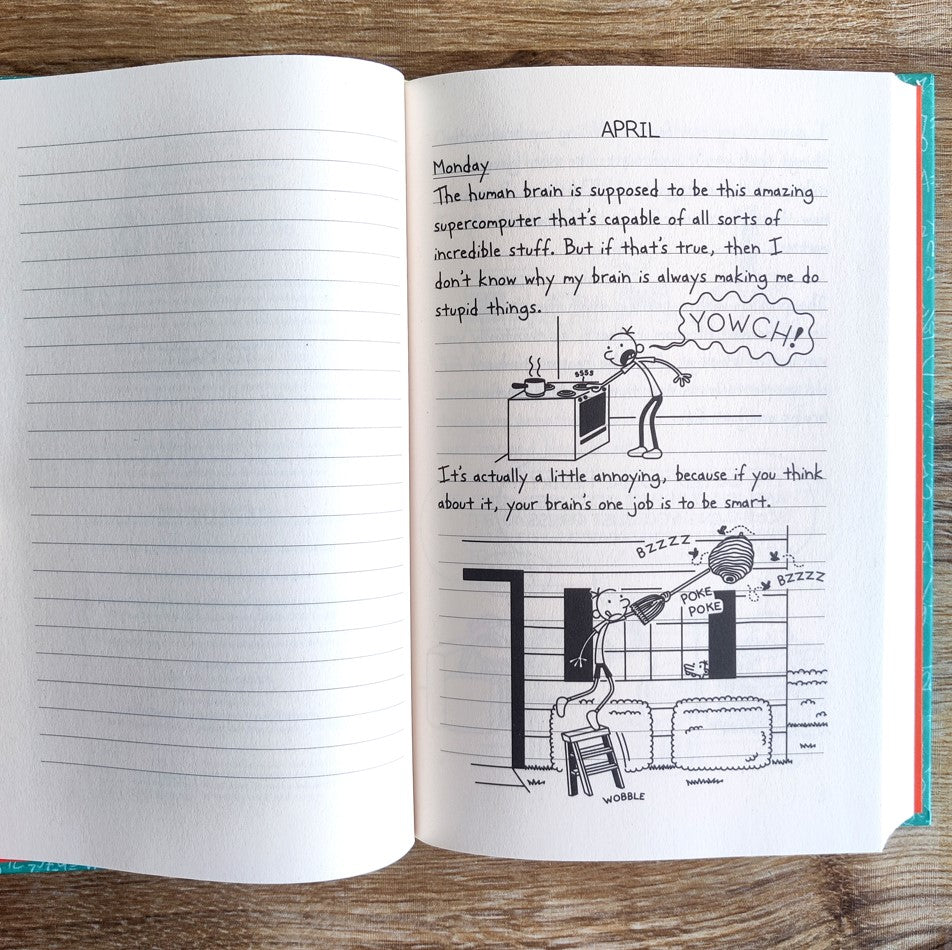 APRIL
Monday
The human brain is supposed to be this amazing
supercomputer that's capable of all sorts of
incredible stuff. But if that's true, then I
don't know why my brain is always making me do
stupid things.
YOWCH!
ssss
It's actually a little annoying, because if you think
about it, your brain's one job is to be smart.
BZZZZ
BZZZZ
POKE
POKE
WOBBLE